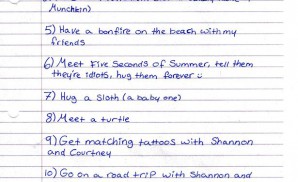 Munchkin)
5) Have a bonfire on the beach with my
friends
6) Meet Five Seconds of Summer, tell them
they're idiots, hug them forever ü
7) Hug a sloth (a baby one)
8) Meet a turtle
9) Get matching tattoos with Shannon
and Courtney
10) Go on a road trip with Shannon and